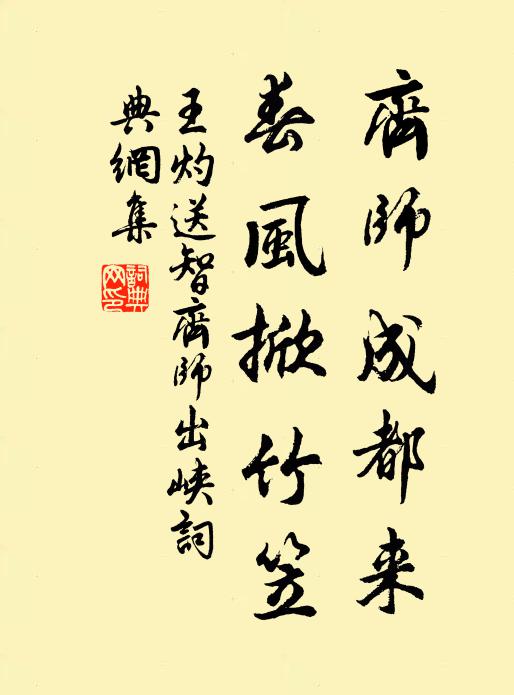 齊師成都来
春風掀竹笠
王灼送智齊師出峽詞
典網集
詞典网印